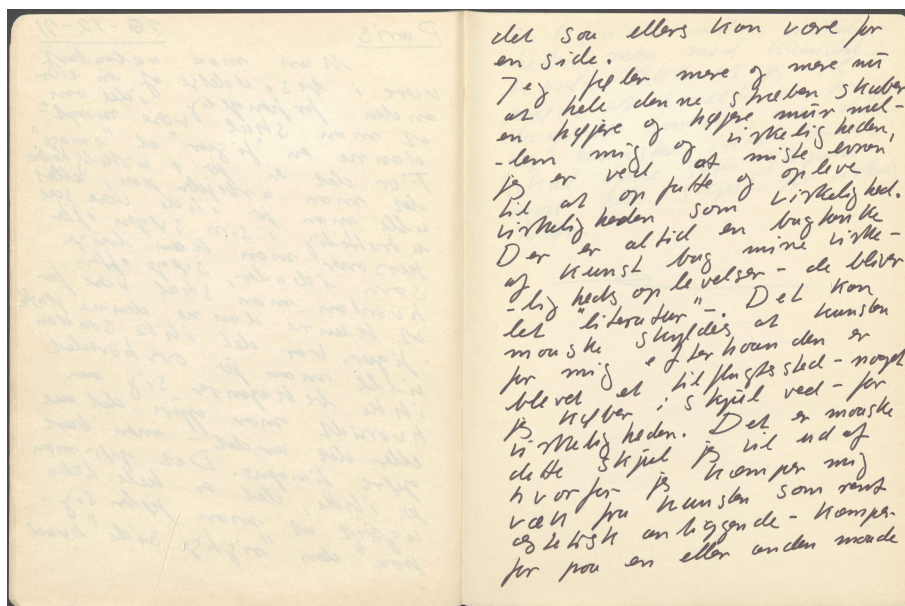 det som ellers kan være for
en side.
Jeg føler mere og mere nu
at hele denne stræben skaber
en højere og højere mur mel-
-lem mig og virkeligheden,
jeg er ved at miste evnen
til at opfatte og opleve
virkeligheden som virkelighed.
Der er altid en bagtanke
af kunst bag mine virke-
-lig heds oplevelser - de bliver
let "literatur". Det kan
maaske skyldes at kunsten
for mig efterhaanden er
blevet et tilflugtssted - noget
jeg kryber i skjul ved - for
virkeligheden. Det er maaske
dette skjul jeg vil ud af
hvorfor jeg kæmper mig
væk fra kunsten som rent
æstetisk anliggende - kæmper
for paa en eller anden maade